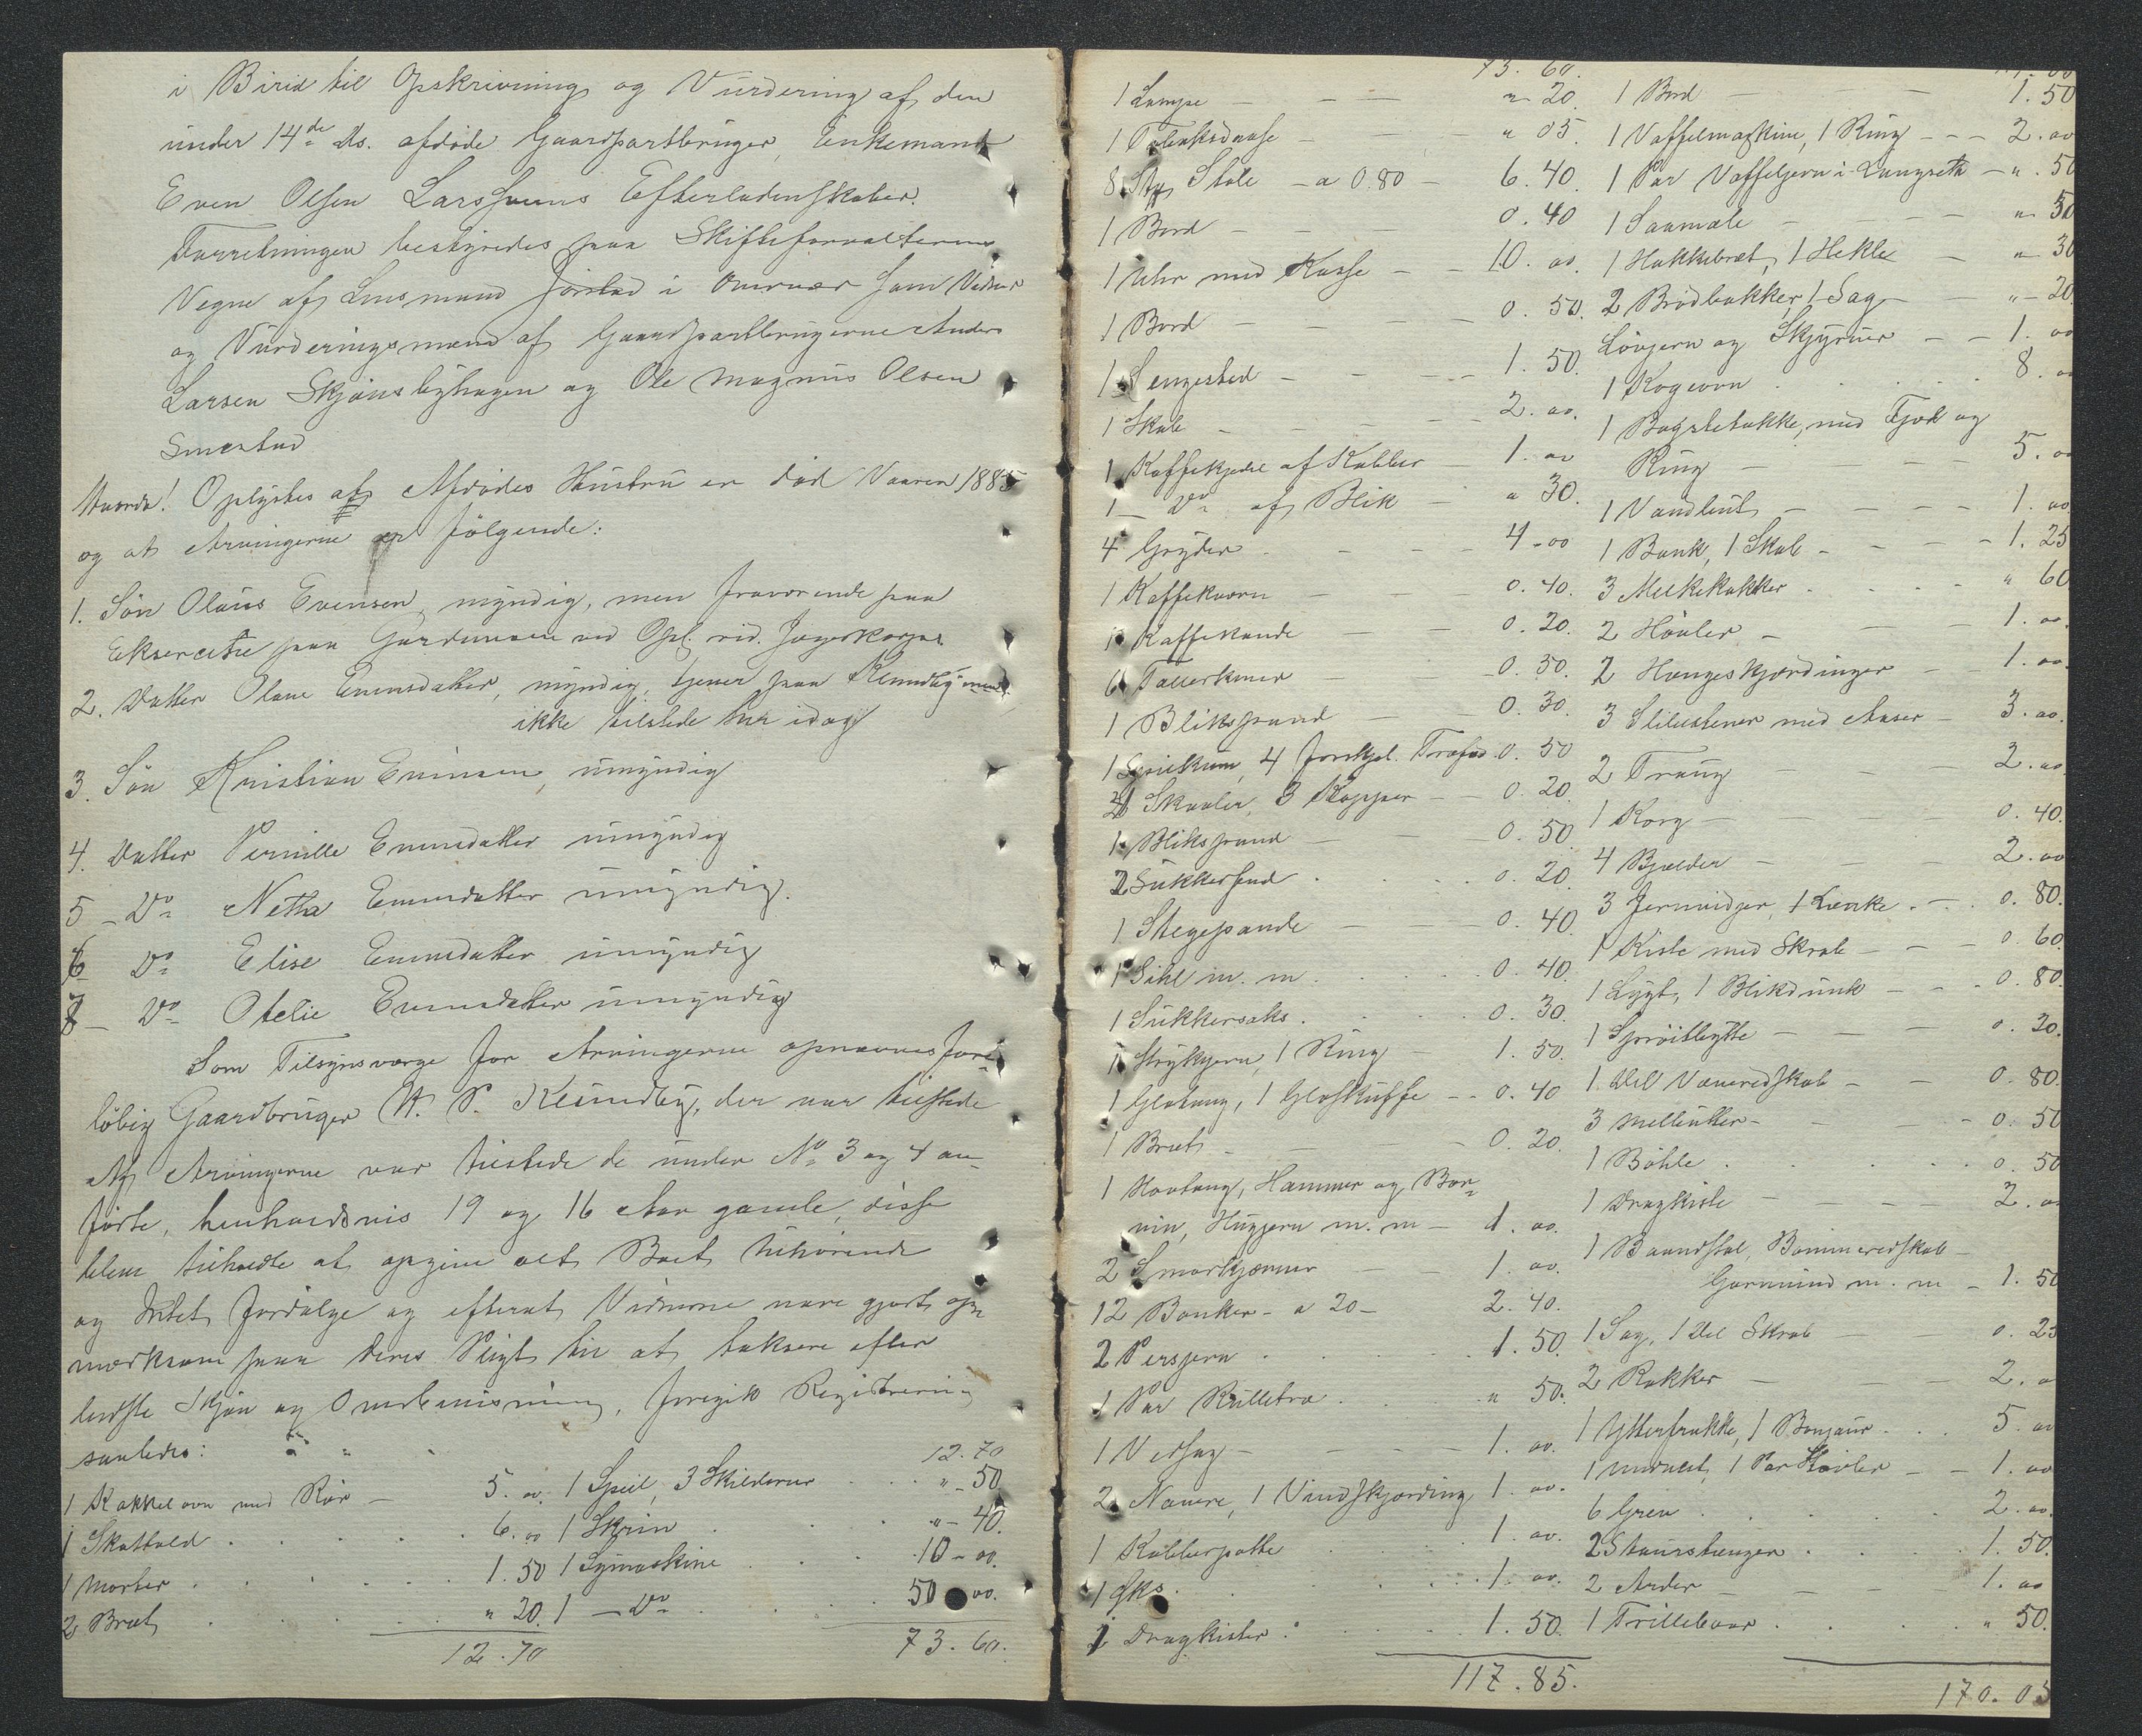 i Birid til Opskrivning og Vurdering af den
under 14de ds. afdøde Gaardpartbruger, Enkemand
Even Olsen Larssveens Efterladenskaber.
Forretningen bestyredes paa Skifteforvalterens
Vegne af Lensmand Jørstad i Overvær som Vidner
og Vurderingsmænd af Gaardpartbrugerne Anders
Larsen Skjønsbyhagen og Ole Magnus Olsen
Smestad
Oplystes at Afdødes Hustru er død Vaaren 1885
og at Arvingerne er følgende:
1. Søn Olaus Evensen, myndig, men fraværende paa
Eksercitie paa Gardmoen ved Opl. rid. Jægerkorps.
2. Datter Olave Evensdatter, myndig, tjener paa Klundby men
ikke tilstede her idag
3. Søn Kristian Evensen, umyndig
4. Datter Pernille Evensdatter umyndig
5 - Do Netta Evensdatter umyndig.
6 Do Elise Evensdatter umyndig
7 - Do Otelie Evensdatter umyndig
Som Tilsynsværge for Arvingerne opnævnes fore-
løbig Gaardbruger H. P. Klundby, der var tilstede
Af Arvingerne var tilstede de under No 3 og 4 an-
førte, henholdsvis 19 og 16 Aar gamle, disse
bleve tilholdte at opgive alt Boet tilhørende
og Intet fordølge og efterat Vidnerne vare gjorte op-
mærksom paa deres Pligt til at taksere efter
bedste Skjøn og Overbevisning, foregik Registrering
saaledes:
1 Kakkelovn med Rør - 5. 00
1 Skathold . . . 6. 00
1 Morter . . . 1. 50
2 Bret . . . " 20.
12. 70
12. 70
1 Speil, 3 Skilderier . . " - 50
1 Skrin . . " - 40.
1 Symaskine . . 10 - 00.
1 - Do . . 50 00.
73. 60.
73. 60.
1 Lampe - - " 20.
1 Tobaksdaase - " 05.
8 Stk Stole - a 0.80 - 6. 40.
1 Bord - - 0. 40
1 Uhr med Kasse - - 10. 00.
1 Bord - - 0. 50.
1 Sengested - - 1. 50.
1 Skab - - 2. 00.
1 Kaffekjedel af Kobber 1. 00
1 - Do af Blik - " 30.
4 Gryder - - 4 - 00
1 Kaffekværn - 0. 40.
1 Kaffekande - 0. 20.
6 Tallerkener - 0. 50.
1 Blikspand - 0. 30.
4 forskjel. Træfad. 0. 50
Skaaler, 3 Kopper - 0. 20.
1 Blikspand - 0. 50
2 Sukkerfad . . 0. 20.
1 Stegepande - 0. 40.
1 Sihl m. m . . 0. 40.
1 Sukkersaks . . 0. 30.
1 Strygjern, 1 Ring - 1. 50.
1 Glotang, 1 Gloskuffe - - 0. 40
1 Bret - - 0. 20.
1 Hovtang, Hammer og
Hugjern m. m - 1. 00.
2 Smørkjerner - 1. 00.
12 Bonker - a 20 - 2. 40.
2 Persjern . . 1. 50.
1 Par Rulletræ . . " 50.
1 Vedsag - - 1. 00.
2 Navere, 1 Vindskjæring 1. 00.
1 Kobberpotte . . 1. 00.
1 Øks . . 1. 00.
2 Dragkister . . 1. 50.
117. 85.
1 Bord - - 1. 50
1 Vaffelmaskine, 1 Ring - - 2. 00
1 Par Vaffeljern i Langseth - " . 50
1 Saamole - - " 50
1 Hakkebret, 1 Hekle - " 30
2 Brødbakker, 1 Sag - - " - 20.
Løvjern og Skjyruer - - 1. 00
1 Kogeovn . . . 8. 00
1 Bagstetakke, med Fjøl og
Ring - - 5. 00
1 Vandbut - - 1. 00
1 Bænk, 1 Skab - - 1. 25
3 Melkekakker . . " 60
2 Høvler - - 1. 00.
2 Hængeskjæringer - 1. 00.
3 Slibestener med Aaser - 3. 00.
2 Traug - - 2. 00
1 Korg - - 0. 40.
4 Bjelder - - 2. 00
3 Jernvidjer, 1 Lænke . - . 0. 80.
1 Kiste med Skrab - - 0. 60.
1 Lygt, 1 Blikdunk - - 0. 80.
1 - - 0. 20.
1 Del Væveredskab - - 0. 80.
3 - - 0. 50
1 Bøhle . . 0. 50
1 Dragkiste - - 2. 00
1 Baandstol, Bommeredskab -
m. m - 1. 50
1 Sag, 1 Del Skrab - 0. 25
2 Rokker - - 2. 00
1 Ytterfrakke, 1 Bonjour . . 5. 00
1 Undervest, 1 Par Støvler - - 1. 00
6 Greb . . 2. 00.
2 Staurstænger . . 1. 50.
2 Arder - - 1. 00
1 Trillebaar . . " 50.
170. 05